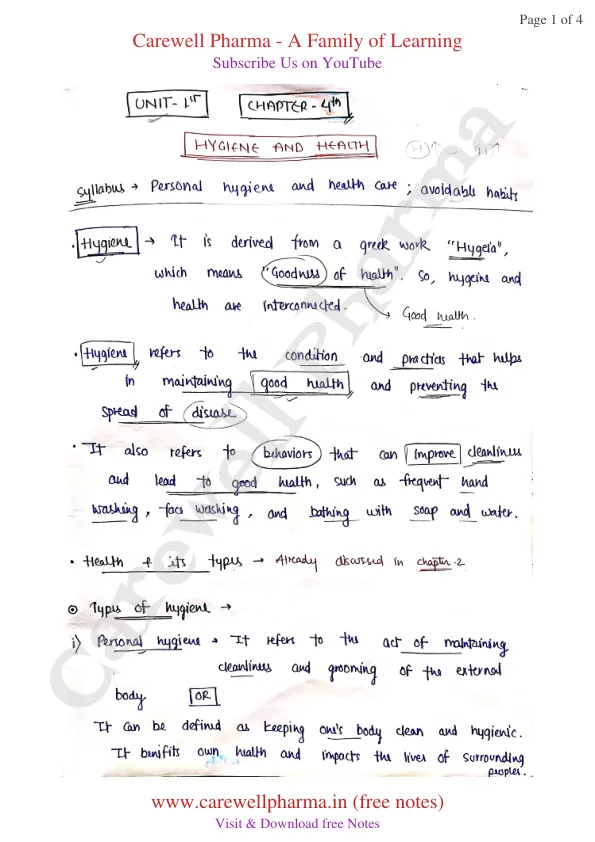 Page 1 of 4
Carewell Pharma - A Family of Learning
Subscribe Us on YouTube
UNIT-1ST CHAPTER-4th
HYGIENE AND HEALTH
Syllabus → Personal hygiene and health care ; avoidable habits
• Hygiene → It is derived from a greek work "Hygeia",
which means "Goodness of health". So, hygeine and
health are interconnected. → Good health.
• Hygiene refers to the condition and practices that helps
in maintaining good health and preventing the
spread of disease
• It also refers to behaviors that can improve cleanliness
and lead to good health, such as frequent hand
washing, face washing, and bathing with soap and water.
• Health & its types → Already discussed in chapter-2
Types of hygiene →
i) Personal hygiene → It refers to the act of maintaining
cleanliness and grooming of the external
body. OR
It can be defined as keeping one's body clean and hygienic.
It benifits own health and impacts the lives of surrounding
peoples.
Carewell Pharma
www.carewellpharma.in (free notes)
Visit & Download free Notes